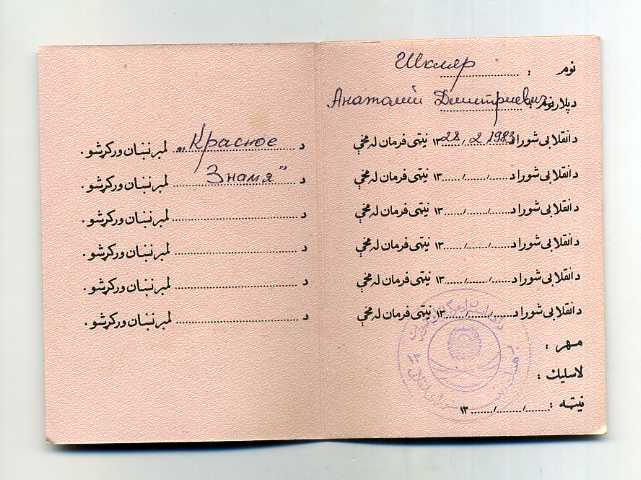 نوم : Шкляр
د پلار نوم : Анатолий Дмитриевич
د انقلابی شورا د 28/2 1983 ۱۳ نیټې فرمان له مخې
د انقلابی شورا د ....../....../...... ۱۳ نیټې فرمان له مخې
د انقلابی شورا د ....../....../...... ۱۳ نیټې فرمان له مخې
د انقلابی شورا د ....../....../...... ۱۳ نیټې فرمان له مخې
د انقلابی شورا د ....../....../...... ۱۳ نیټې فرمان له مخې
د انقلابی شورا د ....../....../...... ۱۳ نیټې فرمان له مخې
مهر :
لاسلیك :
نیټه : ....../....../...... ۱۳
د „Красное لمبر نښان ورکړشو .
د Знамя" لمبر نښان ورکړشو .
د ...................... لمبر نښان ورکړشو .
د ...................... لمبر نښان ورکړشو .
د ...................... لمبر نښان ورکړشو .
د ...................... لمبر نښان ورکړشو .